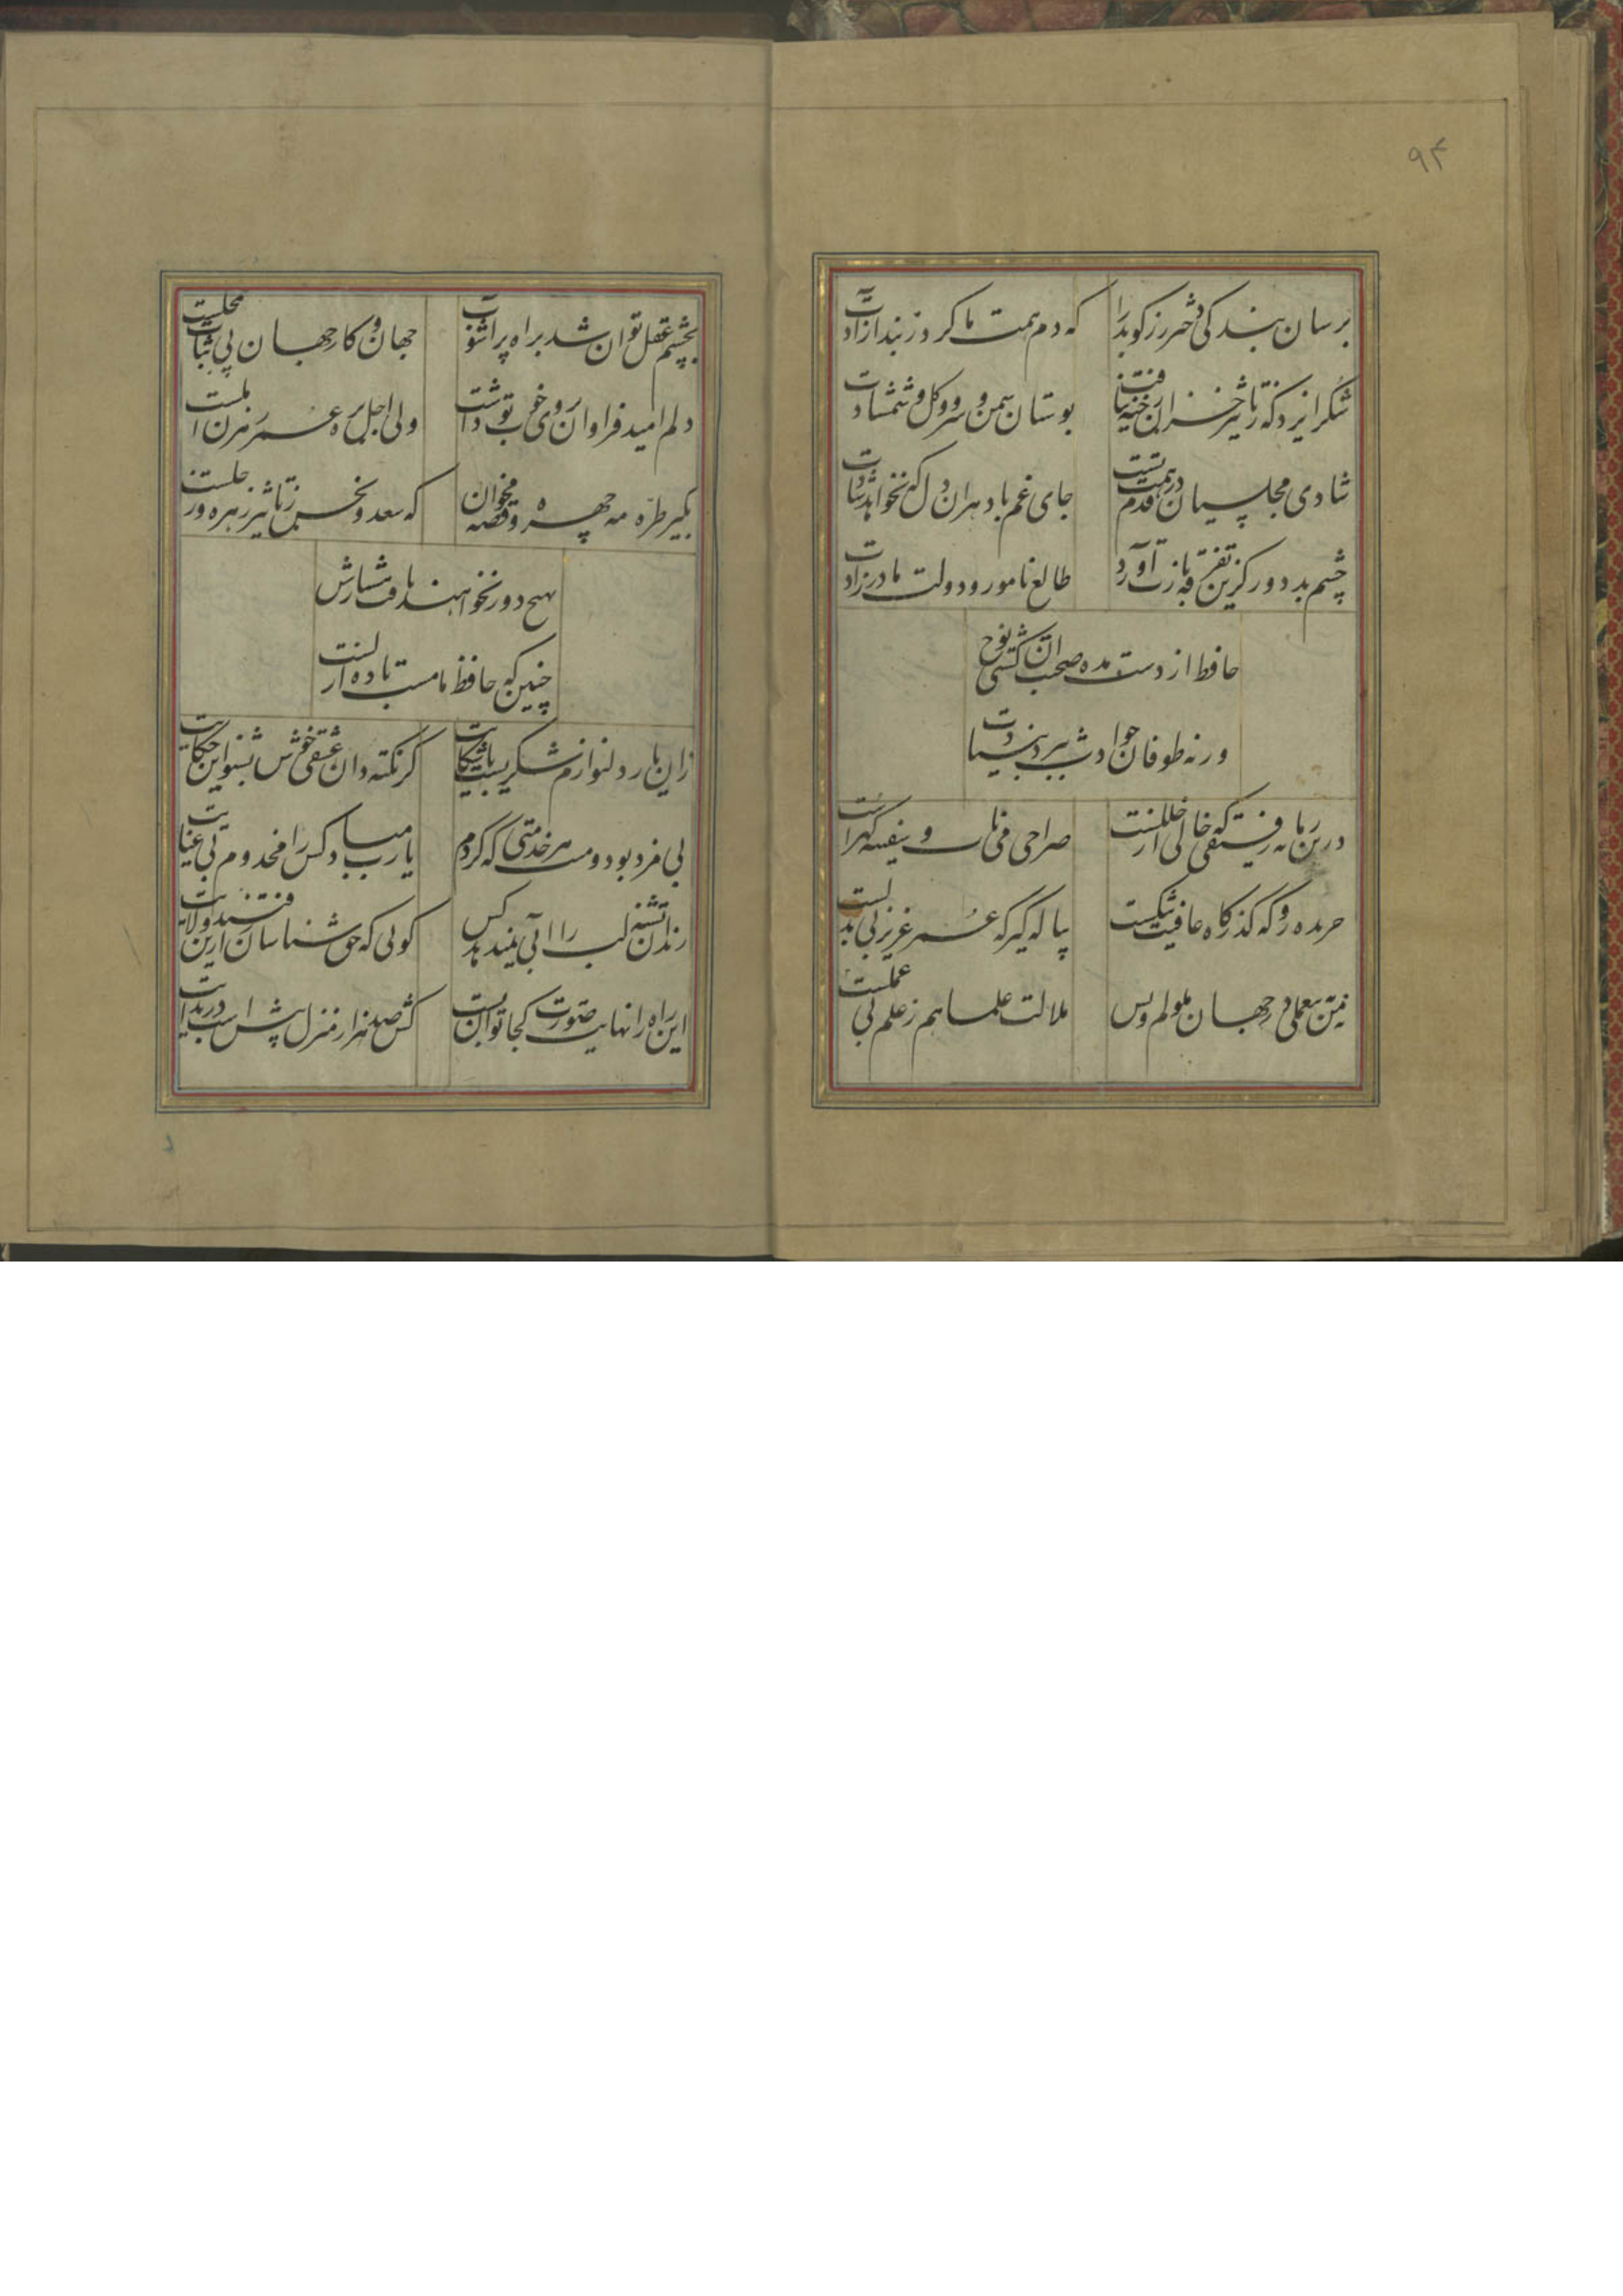 ۹۴
برسان بندگی دختر رز گو بدرآ
که دم همت ما کرد ز بند آزادت
شکر ایزد که ز تاثیر خزان رخنه نیافت
بوستان سمن و سرو و گل و شمشادت
شادی مجلسیان در قدم همت تست
جای غم باد هران دل که نخواهد شادت
چشم بد دور کزین تفرقه باز آورد
طالع نامور و دولت مادرزادت
حافظ از دست مده صحبت ان کشتی نوح
ورنه طوفان حوادث ببرد بنیادت
درین زمانه رفیقی که خالی از خللست
صراحی می ناب و سفینه غزلست
جریده رو که گذرگاه عافیت تنگست
پیاله گیر که عمر عزیز بی بدلست
نه من ز بی عملی در جهان ملولم و بس
ملالت علما هم ز علم بی عملست
بچشم عقل توان شد براه پر آشوب
جهان و کار جهان بی ثبات محلست
دلم امید فراوان ز روی خوب تو داشت
ولی اجل بره عمر رهزن املست
بگیر طره مه چهره و قصه مخوان
که سعد و نحس ز تاثیر زهره و زحلست
بهیچ دور نخواهند یافت هشیارش
چنین که حافظ ما مست باده ازلست
زان یار دلنوازم شکریست با شکایت
گر نکته دان عشقی خوش بشنو این حکایت
بی مزد بود و منت هر خدمتی که کردم
یارب مباد کس را مخدوم بی عنایت
رندان تشنه لب را آبی نمیدهد کس
گویی که حق شناسان رفتند ازین ولایت
این راه را نهایت صورت کجا توان بست
کش صد هزار منزل بیش است در بدایت